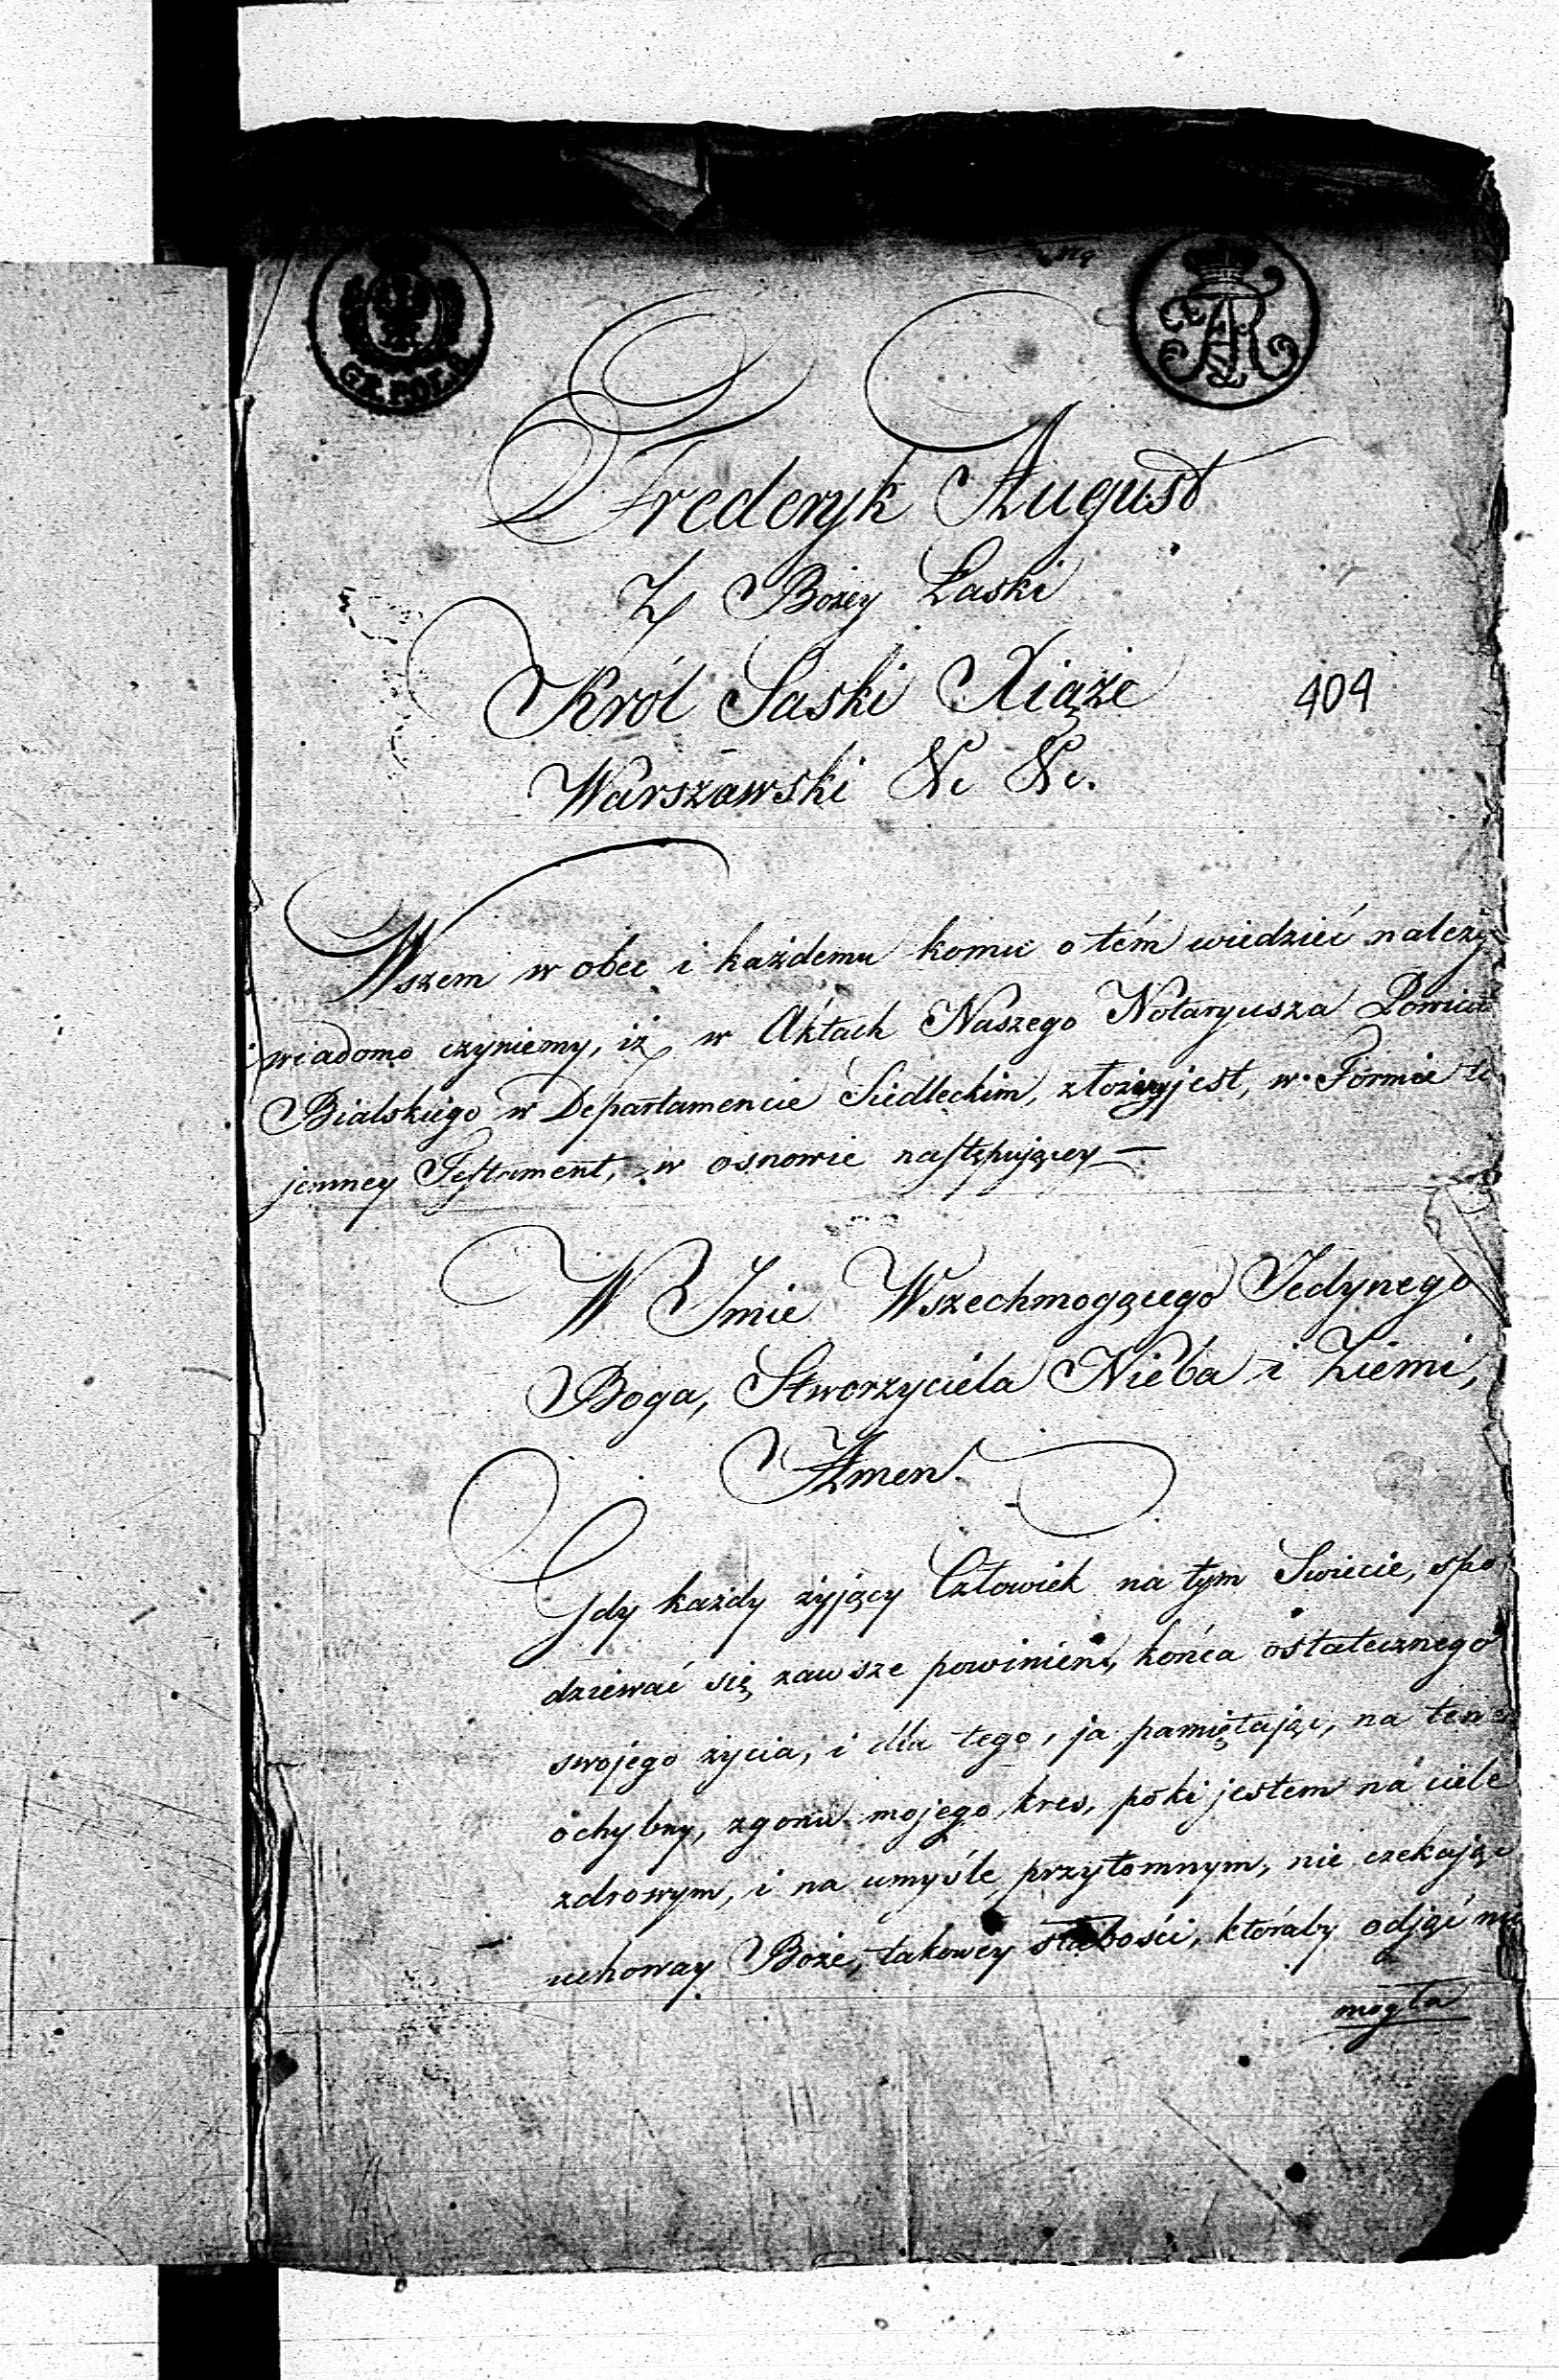 GR. POL. II
Frederyk August
Z Bożey Łaski
Król Saski Xiąże
404
Warszawski &c &c.
Wszem w obec i każdemu komu o tém wiedzieć należy
wiadomo czyniemy, iż w Aktach Naszego Notaryusza Powiat
Bialskiego w Departamencie Siedleckim, złożony jest, w Formie ta
jemney Testament, w osnowie następującey —
W Imie Wszechmogącego Jedynego
Boga, Stworzyciela Nieba i Ziemi,
Amen.
Gdy każdy żyjący Człowiek na tym Swiecie, spo
dziewać się zawsze powinien, końca ostatecznego
swojego życia, i dla tego, ja pamiętając, na ten
ochybny, zgonu mojego kres, póki jestem na ciele
zdrowym, i na umyśle przytomnym, nie czekając
uchoway Boże, takowey słabości, któraby odjąć mi
mogła